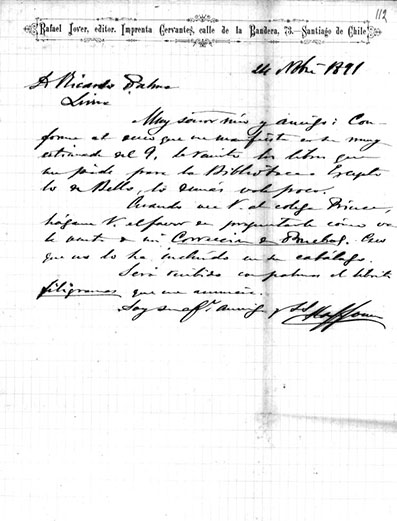 112
Rafael Jover, editor. Imprenta Cervantes, calle de la Bandera, 73. Santiago de Chile
24 Nbre 1891
D Ricardo Palma
Lima
Muy señor mío y amigo: Con-
forme al deseo que me manifiesta en su muy
estimada del 9, le remito los libros que
me pide para la Biblioteca. Excepto
lo de Bello, lo demás vale poco.
Cuando vea V. al colega Prince,
hágame V. el favor de preguntarle cómo va
la venta de mi Corrección de Pruebas. Creo
que no lo ha incluido en su catálogo.
Será recibido con palmas el libro
filigranas que me anuncia.
Soy su af. amigo y SS